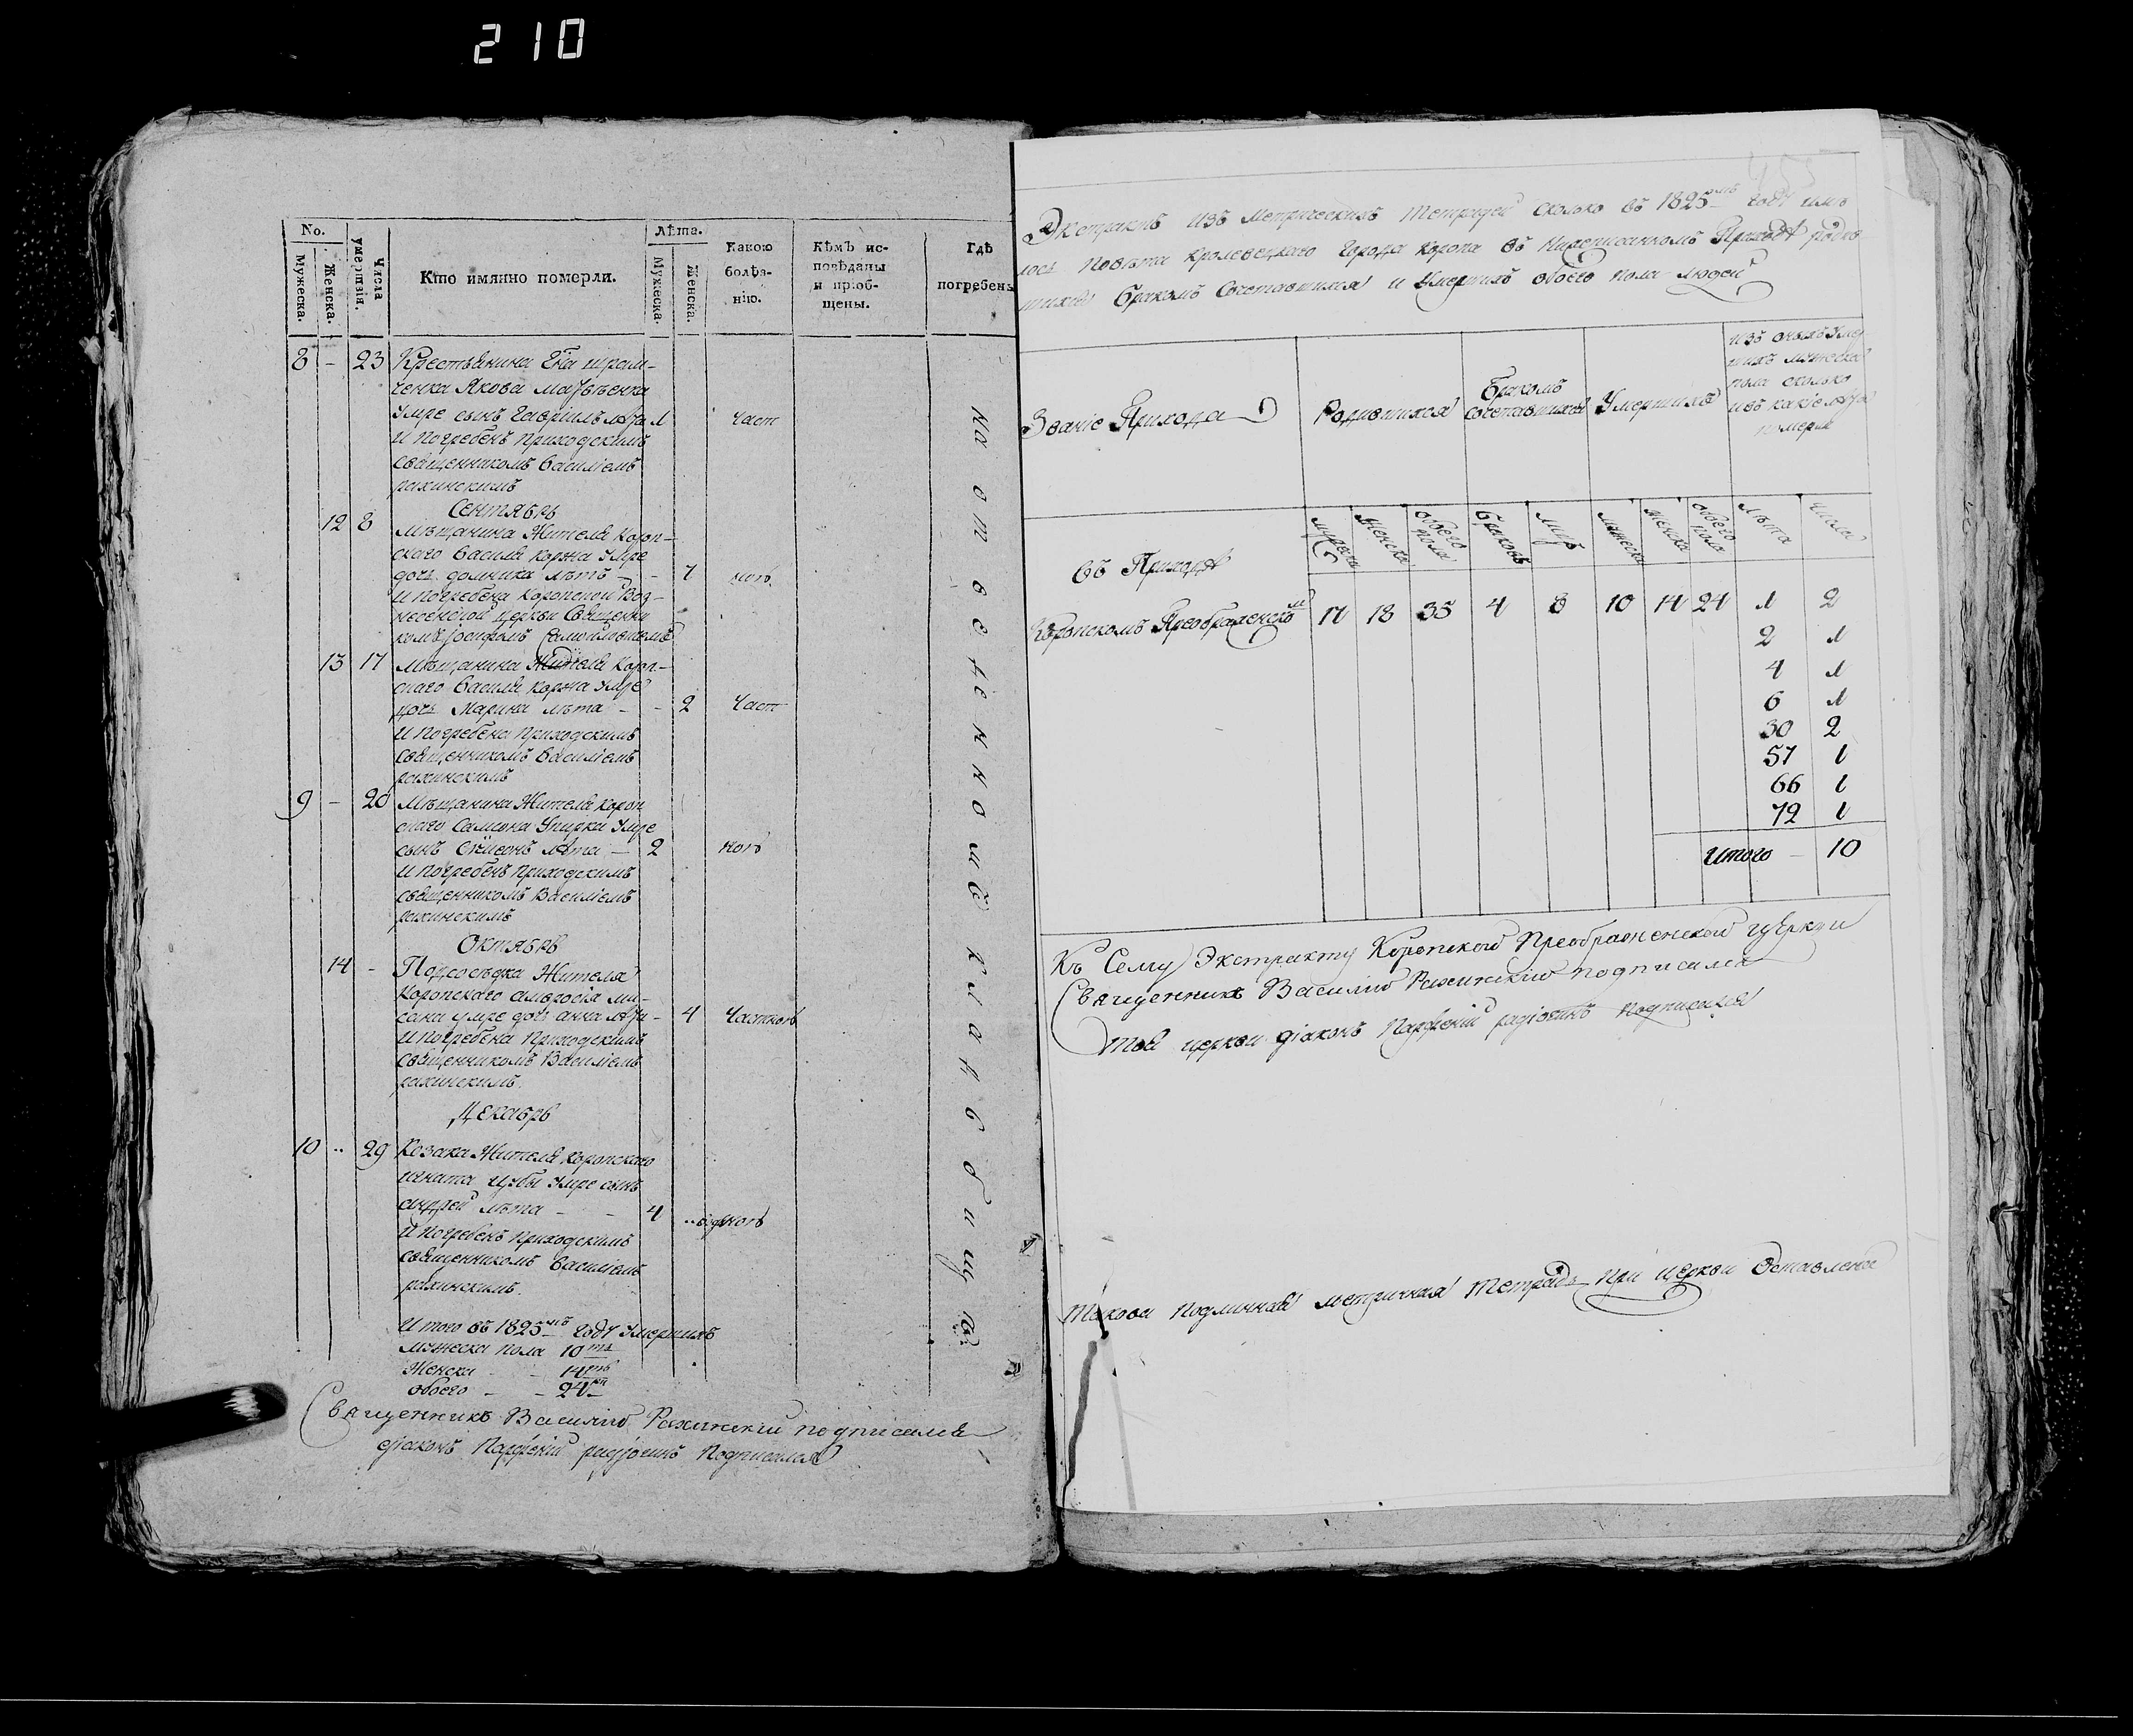 210
No.
Мужеска.
Женска.
Числа умертвія.
Кто имянно померли.
Лѣта.
Мужеска.
Женска.
Какою болѣз-
нію.
Кѣмъ ис-
повѣданы
и пріоб-
щены.
Гдѣ
погребены
8 - 23 Крестьянина
Якова
Умре сынъ Гавріилъ 1
И Погребенъ Приходскимъ
Священникомъ Василіемъ
рахинскимъ
Сентябрь
12 8 Мѣщанина Жителя Короп-
ского Василя Коржа Умре
дочь домника лѣтъ - - 7
И Погребена Коропской Воз-
несенской церкви Священни
комъ Іосифомъ Самойловичемъ
13 17 Мѣщанина Жителя Короп-
скаго Василя Коржа Умре
дочь Марина лѣта - - 2
И Погребена Приходскимъ
Священникомъ Василіемъ
рахинскимъ
9 - 20 Мѣщанина Жителя Короп
скаго Самсона Умре
сынъ лѣта - 2
И Погребенъ Приходскимъ
Священникомъ Василіемъ
рахинскимъ
Октябрь
14 - Подсосѣдка Жителя
Коропскаго амвросія ми-
умре дочь анна 4
И Погребена Приходскимъ
Священникомъ Василіемъ
рахинскимъ.
Декабрь
10 29 Козака Жителя Коропскаго
игната Умре сынъ
андрей лѣта - - 4
И Погребенъ Приходскимъ
Священникомъ Василіемъ
рахинскимъ.
На отведенномъ кладбищѣ
Итого въ 1825мъ годѣ Умершихъ
мужеска пола 10ть
Женска - - 14ть
обоего - - 24ри
Священникъ Василій Рахинскій подписался
діаконъ Парфеній Подписался
Экстрактъ изъ Метрическихъ Тетрадей сколько въ 1825мъ годѣ имѣ
лось Повѣта Кролевецкаго города Коропа въ Нижеписанномъ Приходѣ родив
шихся Бракомъ Сочетавшихся и Умершихъ обоего пола людей
Званіе Прихода
Родившихся
Бракомъ
сочетавшихся
Умершихъ
изъ оныхъ Умер
шихъ мужеска
пола сколько
и въ какіе
померли
мужеска
женска
обоего пола
браковъ
мужеска
женска
обоего пола
лѣта
число
въ Приходѣ
Коропскомъ Преображенскомъ 17 18 35 4 8 10 14 24 1 2
2 1
4 1
6 1
30 2
57 1
66 1
72 1
Итого - 10
Къ Сему Экстракту Коропской Преображенской церкви
Священникъ Василій Рахинскій подписался
Той церкви діаконъ Парфеній Подписался
Такова Подлинная метричная Тетрадь При церкви Оставлена